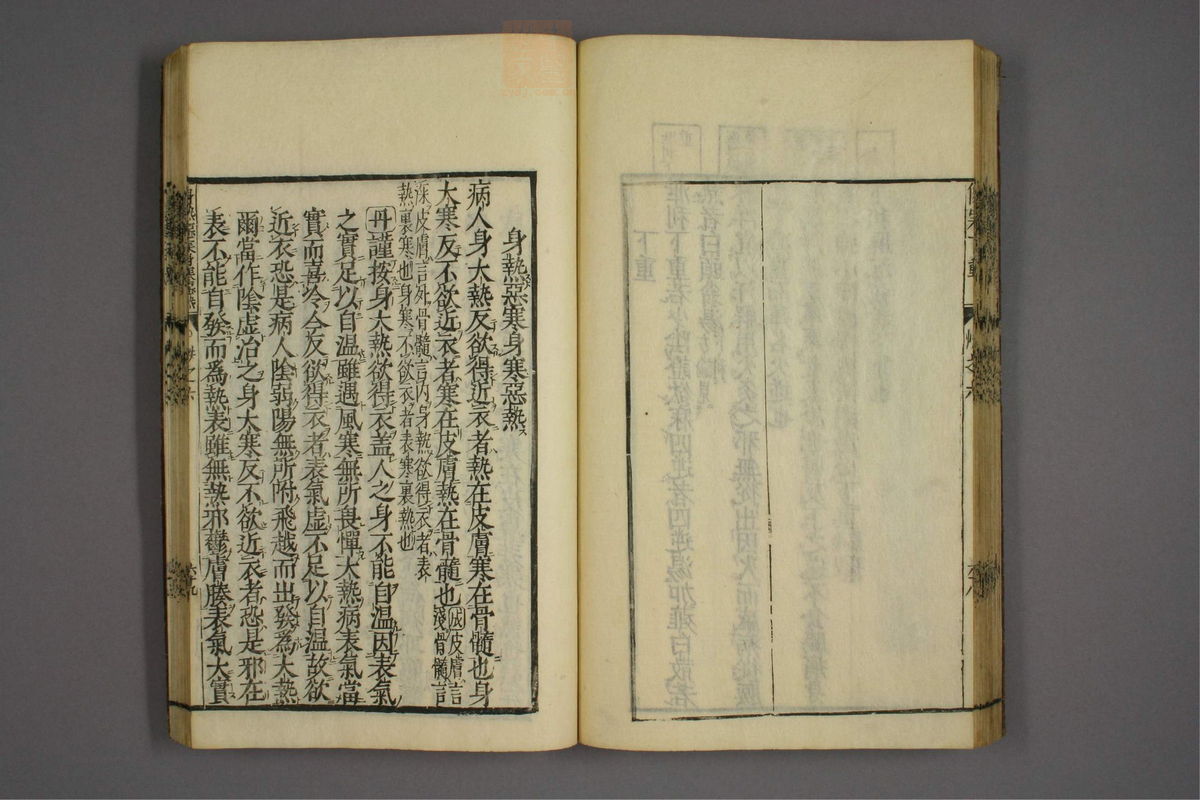 身熱惡寒身寒惡熱
病人身大熱反欲得近衣者熱在皮膚寒在骨髓也身
大寒反不欲近衣者寒在皮膚熱在骨髓也成皮膚言
淺骨髓言
深皮膚言外骨髓言內身熱欲得衣者表
熱裏寒也身寒不欲衣者表寒裏熱也
丹謹按身大熱欲得衣盖人之身不能自温因表氣
之實足以自温雖遇風寒無所畏憚大熱病表氣當
實而喜冷今反欲得衣者表氣虛不足以自温故欲
近衣恐是病人陰弱陽無所附飛越而出發為大熱
爾當作陰虛治之身大寒反不欲近衣者恐是邪在
表不能自發而為熱表雖無熱邪鬱膚腠表氣大實